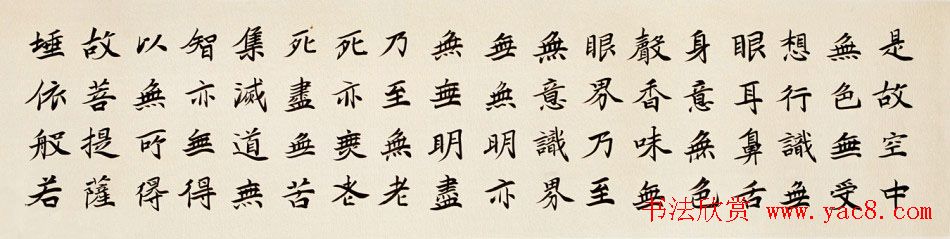 是故空中
無色無受
想行識無
眼耳鼻舌
身意無色
聲香味無
眼界乃至
無意識界
無無明亦
無無明盡
乃至無老
死亦無老
死盡無苦
集滅道無
智亦無得
以無所得
故菩提薩
埵依般若
书法欣赏 www.yac8.com